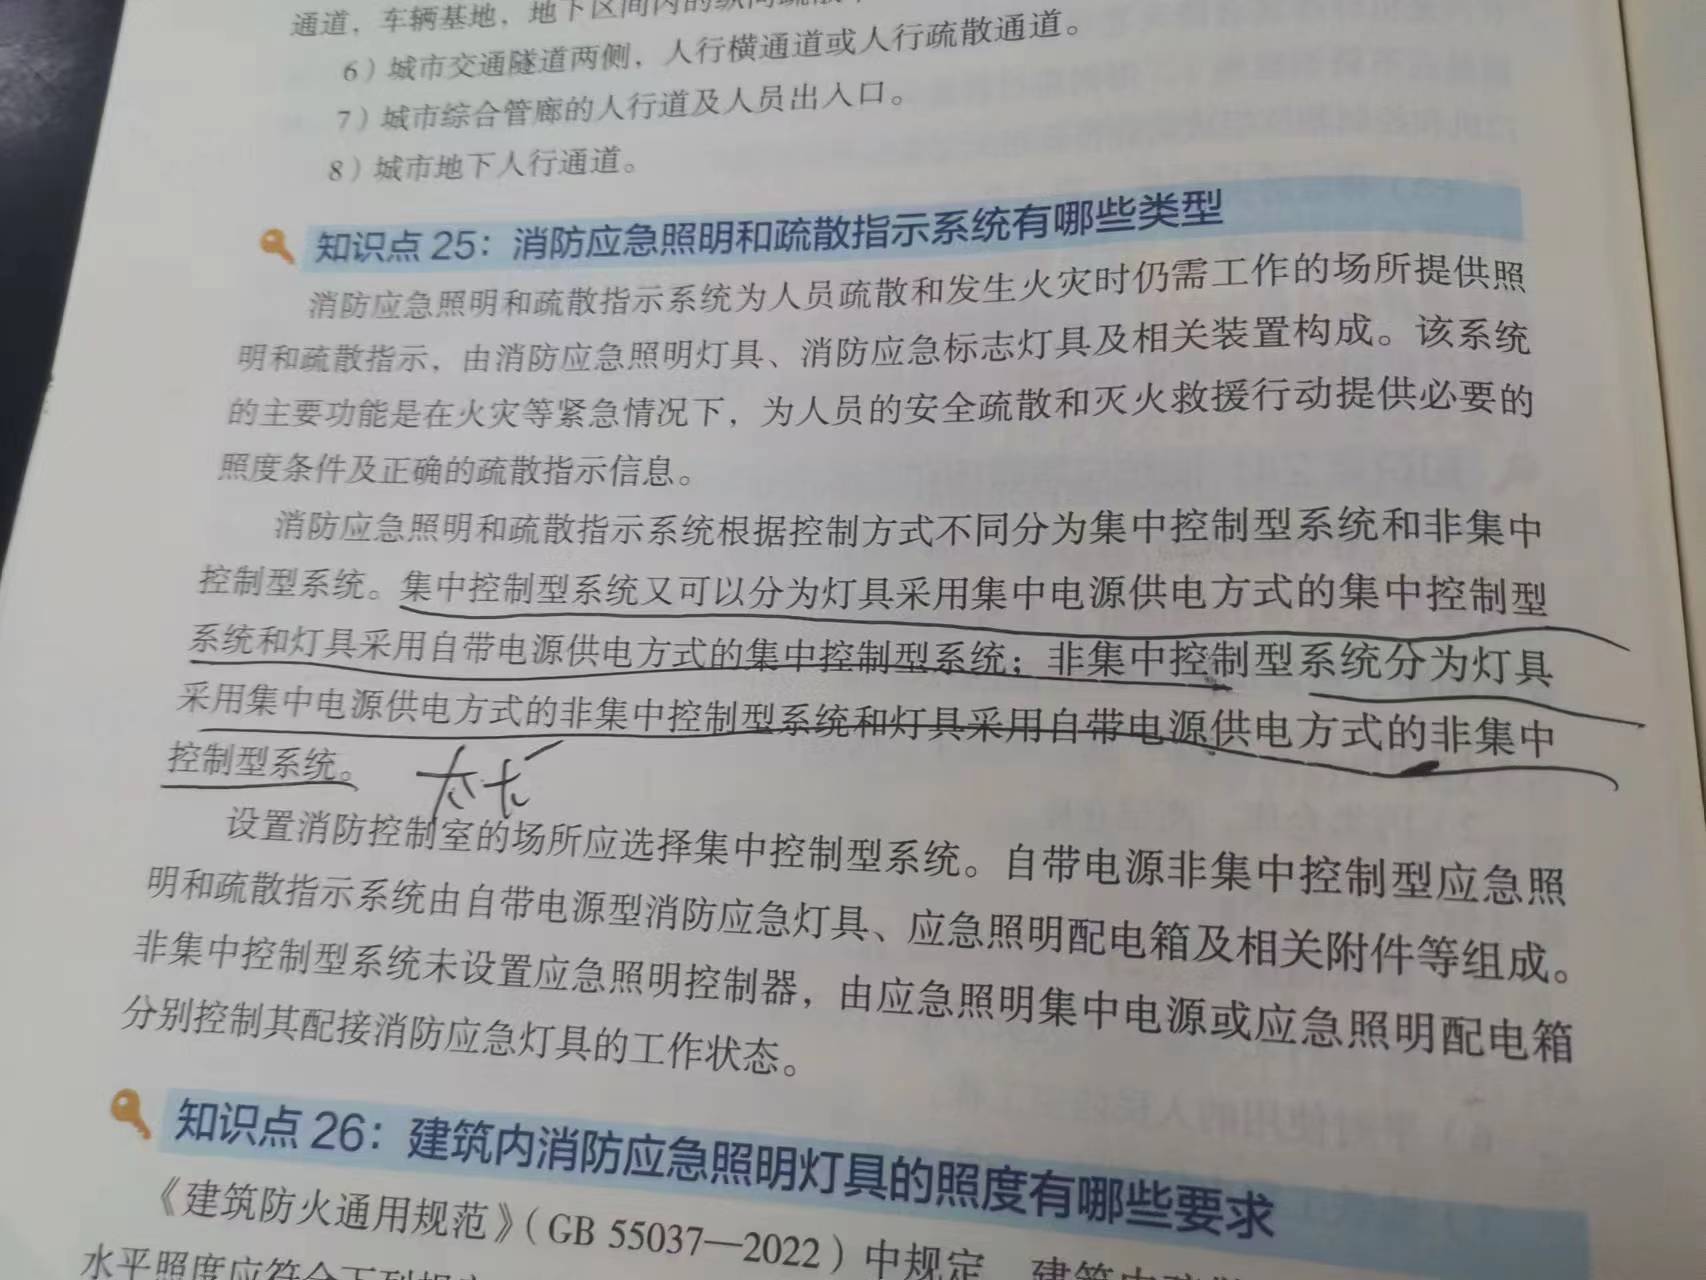 通道，车辆基地，地下区间内的纵向疏散
6）城市交通隧道两侧，人行横通道或人行疏散通道。
7）城市综合管廊的人行道及人员出入口。
8）城市地下人行通道。
知识点 25：消防应急照明和疏散指示系统有哪些类型
消防应急照明和疏散指示系统为人员疏散和发生火灾时仍需工作的场所提供照
明和疏散指示，由消防应急照明灯具、消防应急标志灯具及相关装置构成。该系统
的主要功能是在火灾等紧急情况下，为人员的安全疏散和灭火救援行动提供必要的
照度条件及正确的疏散指示信息。
消防应急照明和疏散指示系统根据控制方式不同分为集中控制型系统和非集中
控制型系统。集中控制型系统又可以分为灯具采用集中电源供电方式的集中控制型
系统和灯具采用自带电源供电方式的集中控制型系统；非集中控制型系统分为灯具
采用集中电源供电方式的非集中控制型系统和灯具采用自带电源供电方式的非集中
控制型系统。
设置消防控制室的场所应选择集中控制型系统。自带电源非集中控制型应急照
明和疏散指示系统由自带电源型消防应急灯具、应急照明配电箱及相关附件等组成。
非集中控制型系统未设置应急照明控制器，由应急照明集中电源或应急照明配电箱
分别控制其配接消防应急灯具的工作状态。
知识点 26：建筑内消防应急照明灯具的照度有哪些要求
《建筑防火通用规范》（GB 55037—2022）中规定，建筑内疏散
水平照度应符合下列规定